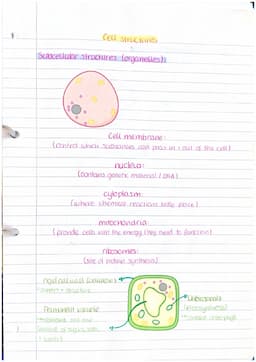 Cell structures
Subcellular structures (organelles):
Cell membrane:
(control which substances can pass in + out of the cell)
nucleus:
(contains genetic material / DNA)
cytoplasm:
(where chemical reactions take place)
mitochondria:
(provide cells with the energy they need to function)
ribosomes:
(site of protein synthesis)
Permanent vacuole
Chloroplasts
(photosynthesis)